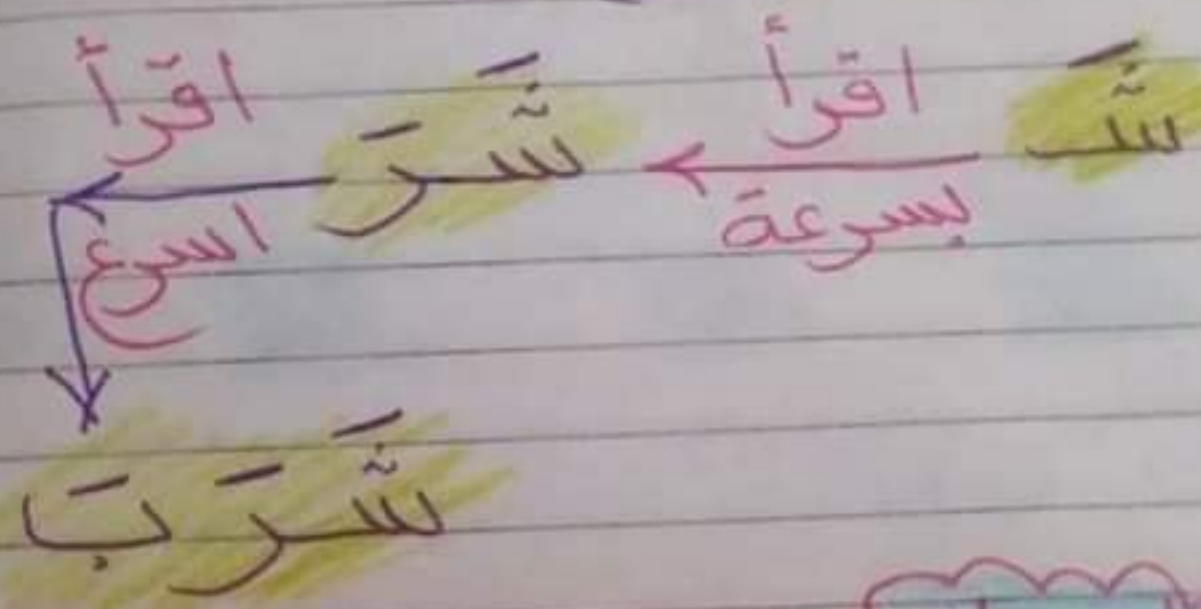 شَـ اقرأ بسرعة شَرَ اقرأ اسرع
شَرَبَ